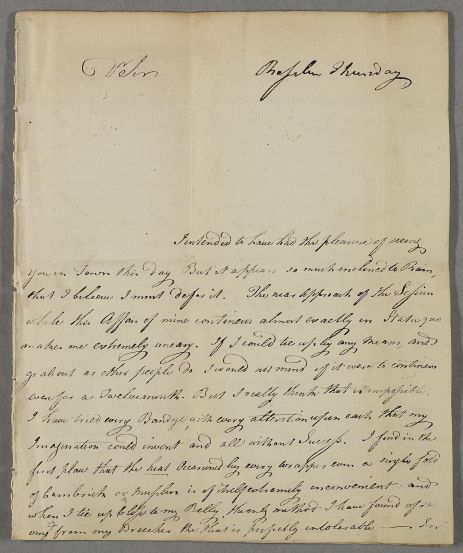 Dr Sir
Thursday
I intended to have had the pleasure of seeing
you in Town this day But it appears so much inclined to Rain,
that I believe I must defer it. The near Approach of the Session
while this Affair of mine continues almost exactly in Statu quo
makes me extremely uneasy. If I could tie up by any means, and
go about as other people do I would not mind if it were to continue
even for a Twelvemonth. But I really think that is impossible.
I have tried every Bandge, with every attention upon each that my
Imagination could invent and all without Success. I find in the
first place that the heat Occasioned by every wrapper, even a single fold
of Cambrick or Muslin is of itself extremely inconvenient and
when I tie up close to my Belly the only method I have found of
from my Breeches the Heat is perfectly intolerable